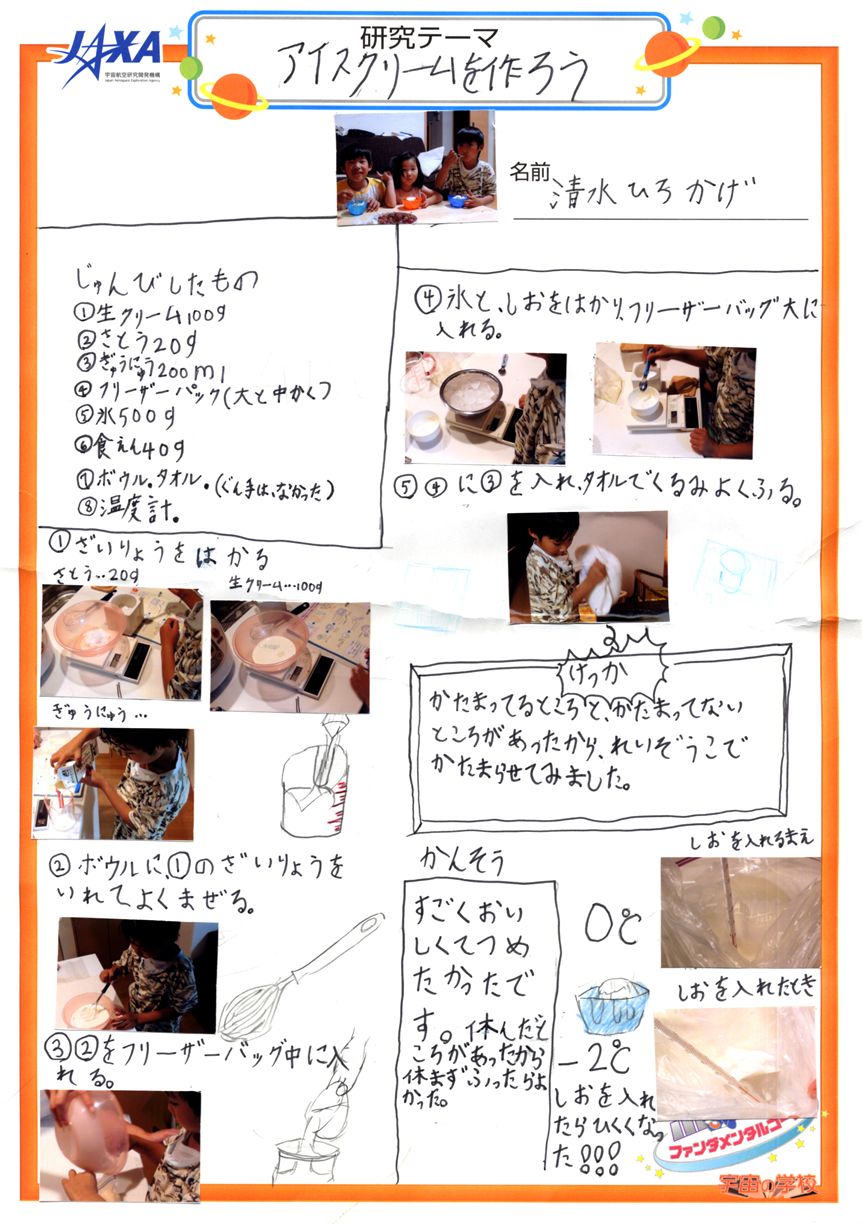 JAXA
宇宙航空研究開発機構
Japan Aerospace Exploration Agency
研究テーマ
アイスクリームを作ろう
名前 清水ひろかげ
じゅんびしたもの
①生クリーム100g
②さとう20g
③ぎゅうにゅう200ml
④フリーザーパック(大と中かく2
⑤氷500g
⑥食えん40g
⑦ボウル。タオル。(ぐん手は、なかった)
⑧温度計。
①ざいりょうをはかる
さとう…20g
生クリーム…100g
ぎゅうにゅう…
②ボウルに、①のざいりょうを
いれてよくまぜる。
③②をフリーザーバッグ中に入
れる。
④氷と、しおをはかり、フリーザーバッグ大に
入れる。
⑤④に③を入れ、タオルでくるみよくふる。
けっか
かたまってるところと、かたまってない
ところがあったから、れいぞうこで
かたまらせてみました。
かんそう
すごくおい
しくてつめ
たかったで
す。休んだと
ころがあったから
休まずふったらよ
かった。
しおを入れるまえ
0℃
しおを入れたとき
-2℃
しおを入れ
たらひくくなっ
た!!!
ファンダメンタルコー
宇宙の学校